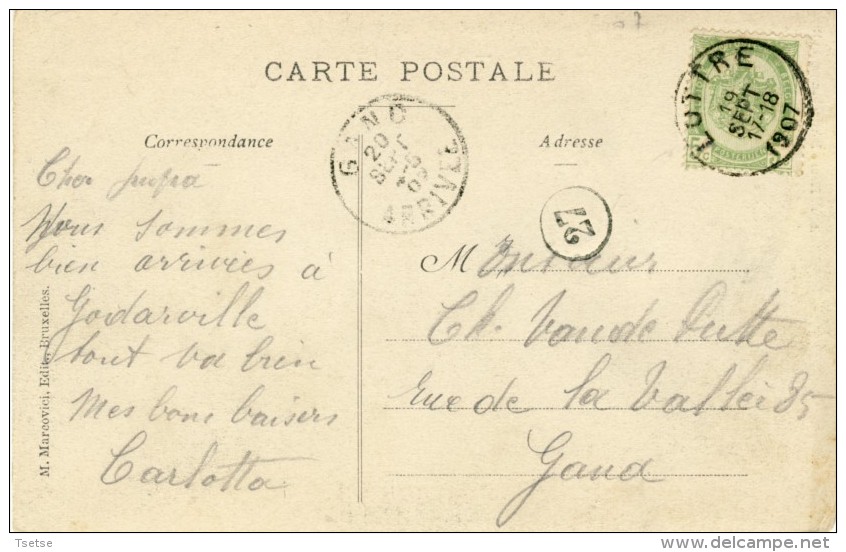 CARTE POSTALE
Correspondance
Adresse
LUTTRE
19
SEPT
17-18
1907
GAND
20
SEPT
ARRIVEE
27
Cher
Nous sommes
bien arrivées à
Godarville
tout va bien
Mes bons baisers
Carlotta
Monsieur
Ch. Vande Putte
rue de la Vallée 85
Gand
M. Marcovici, Edit., Bruxelles.
Tsetse
www.delcampe.net